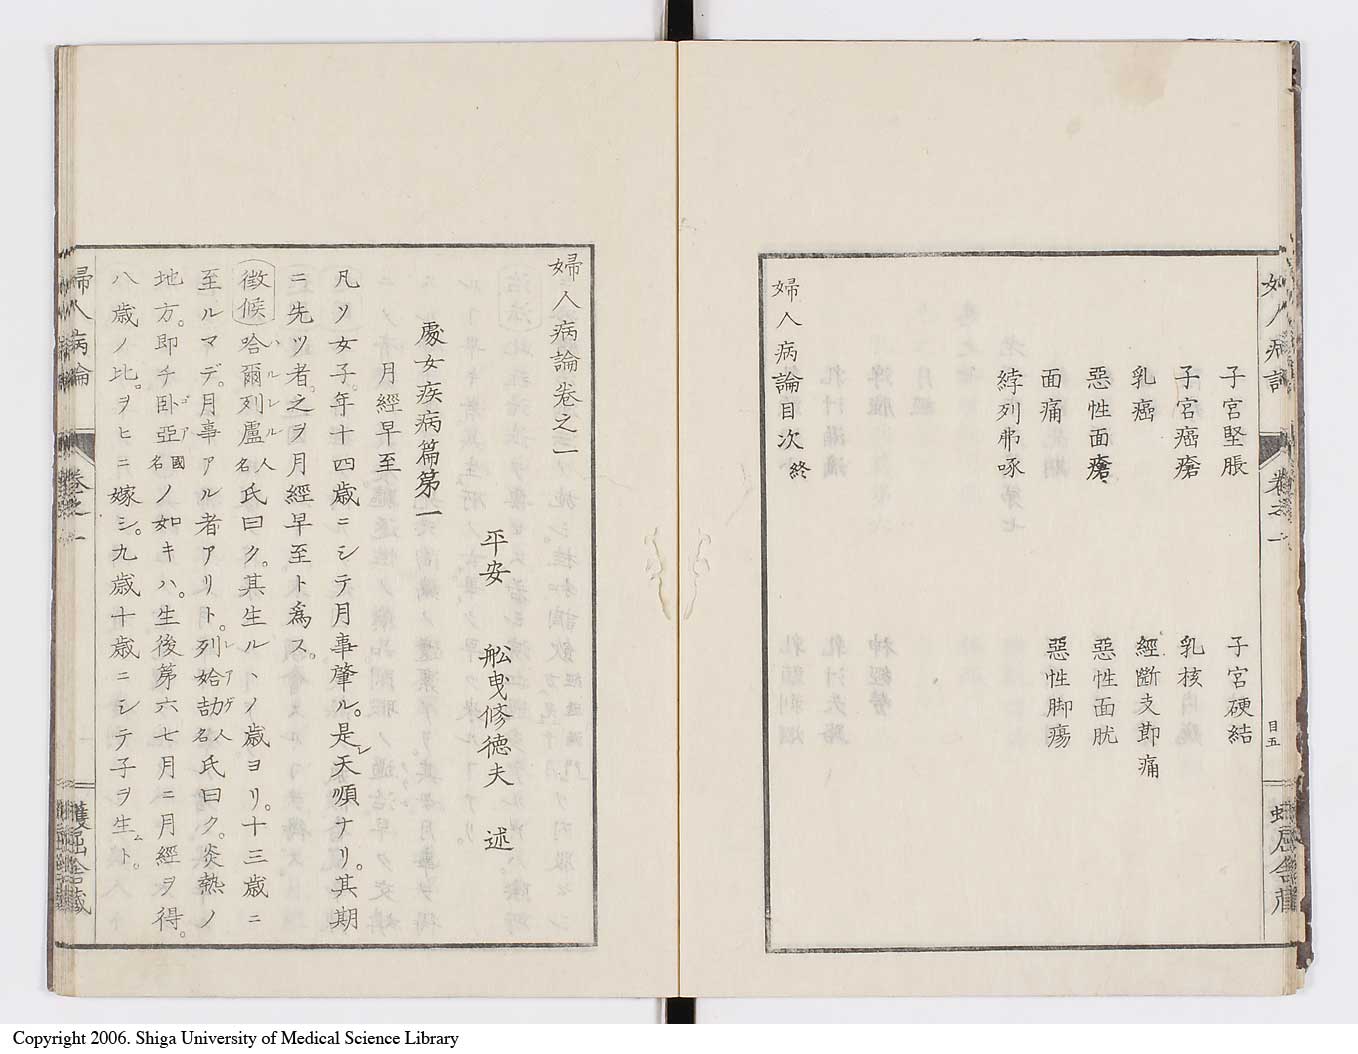 子宮堅脹　子宮硬結
子宮癌瘡　乳核
乳癌　經斷支節痛
惡性面瘡　惡性面胱
面痛　惡性脚瘍
綍列弗啄
婦人病論目次終
目五
婦人病論卷之一
平安　舩曳修德夫　述
處女疾病篇第一
月經早至
凡ソ女子。年十四歳ニシテ月事肇ル。是レ天順ナリ。其期
ニ先ツ者。之ヲ月經早至ト爲ス。
徴候 哈爾列盧人名氏曰ク。其生ルトノ歳ヨリ。十三歳ニ
ハルレル
至ルマデ。月事アル者アリト。列始劼人名氏曰ク。炎熱ノ
レアゲ
地方。即チ卧亞國名ノ如キハ。生後第六七月ニ月經ヲ得。
ゴア
八歳ノ比。ヲヒニ嫁シ。九歳十歳ニシテ子ヲ生ムト。
婦人病論　卷之一
Copyright 2006. Shiga University of Medical Science Library